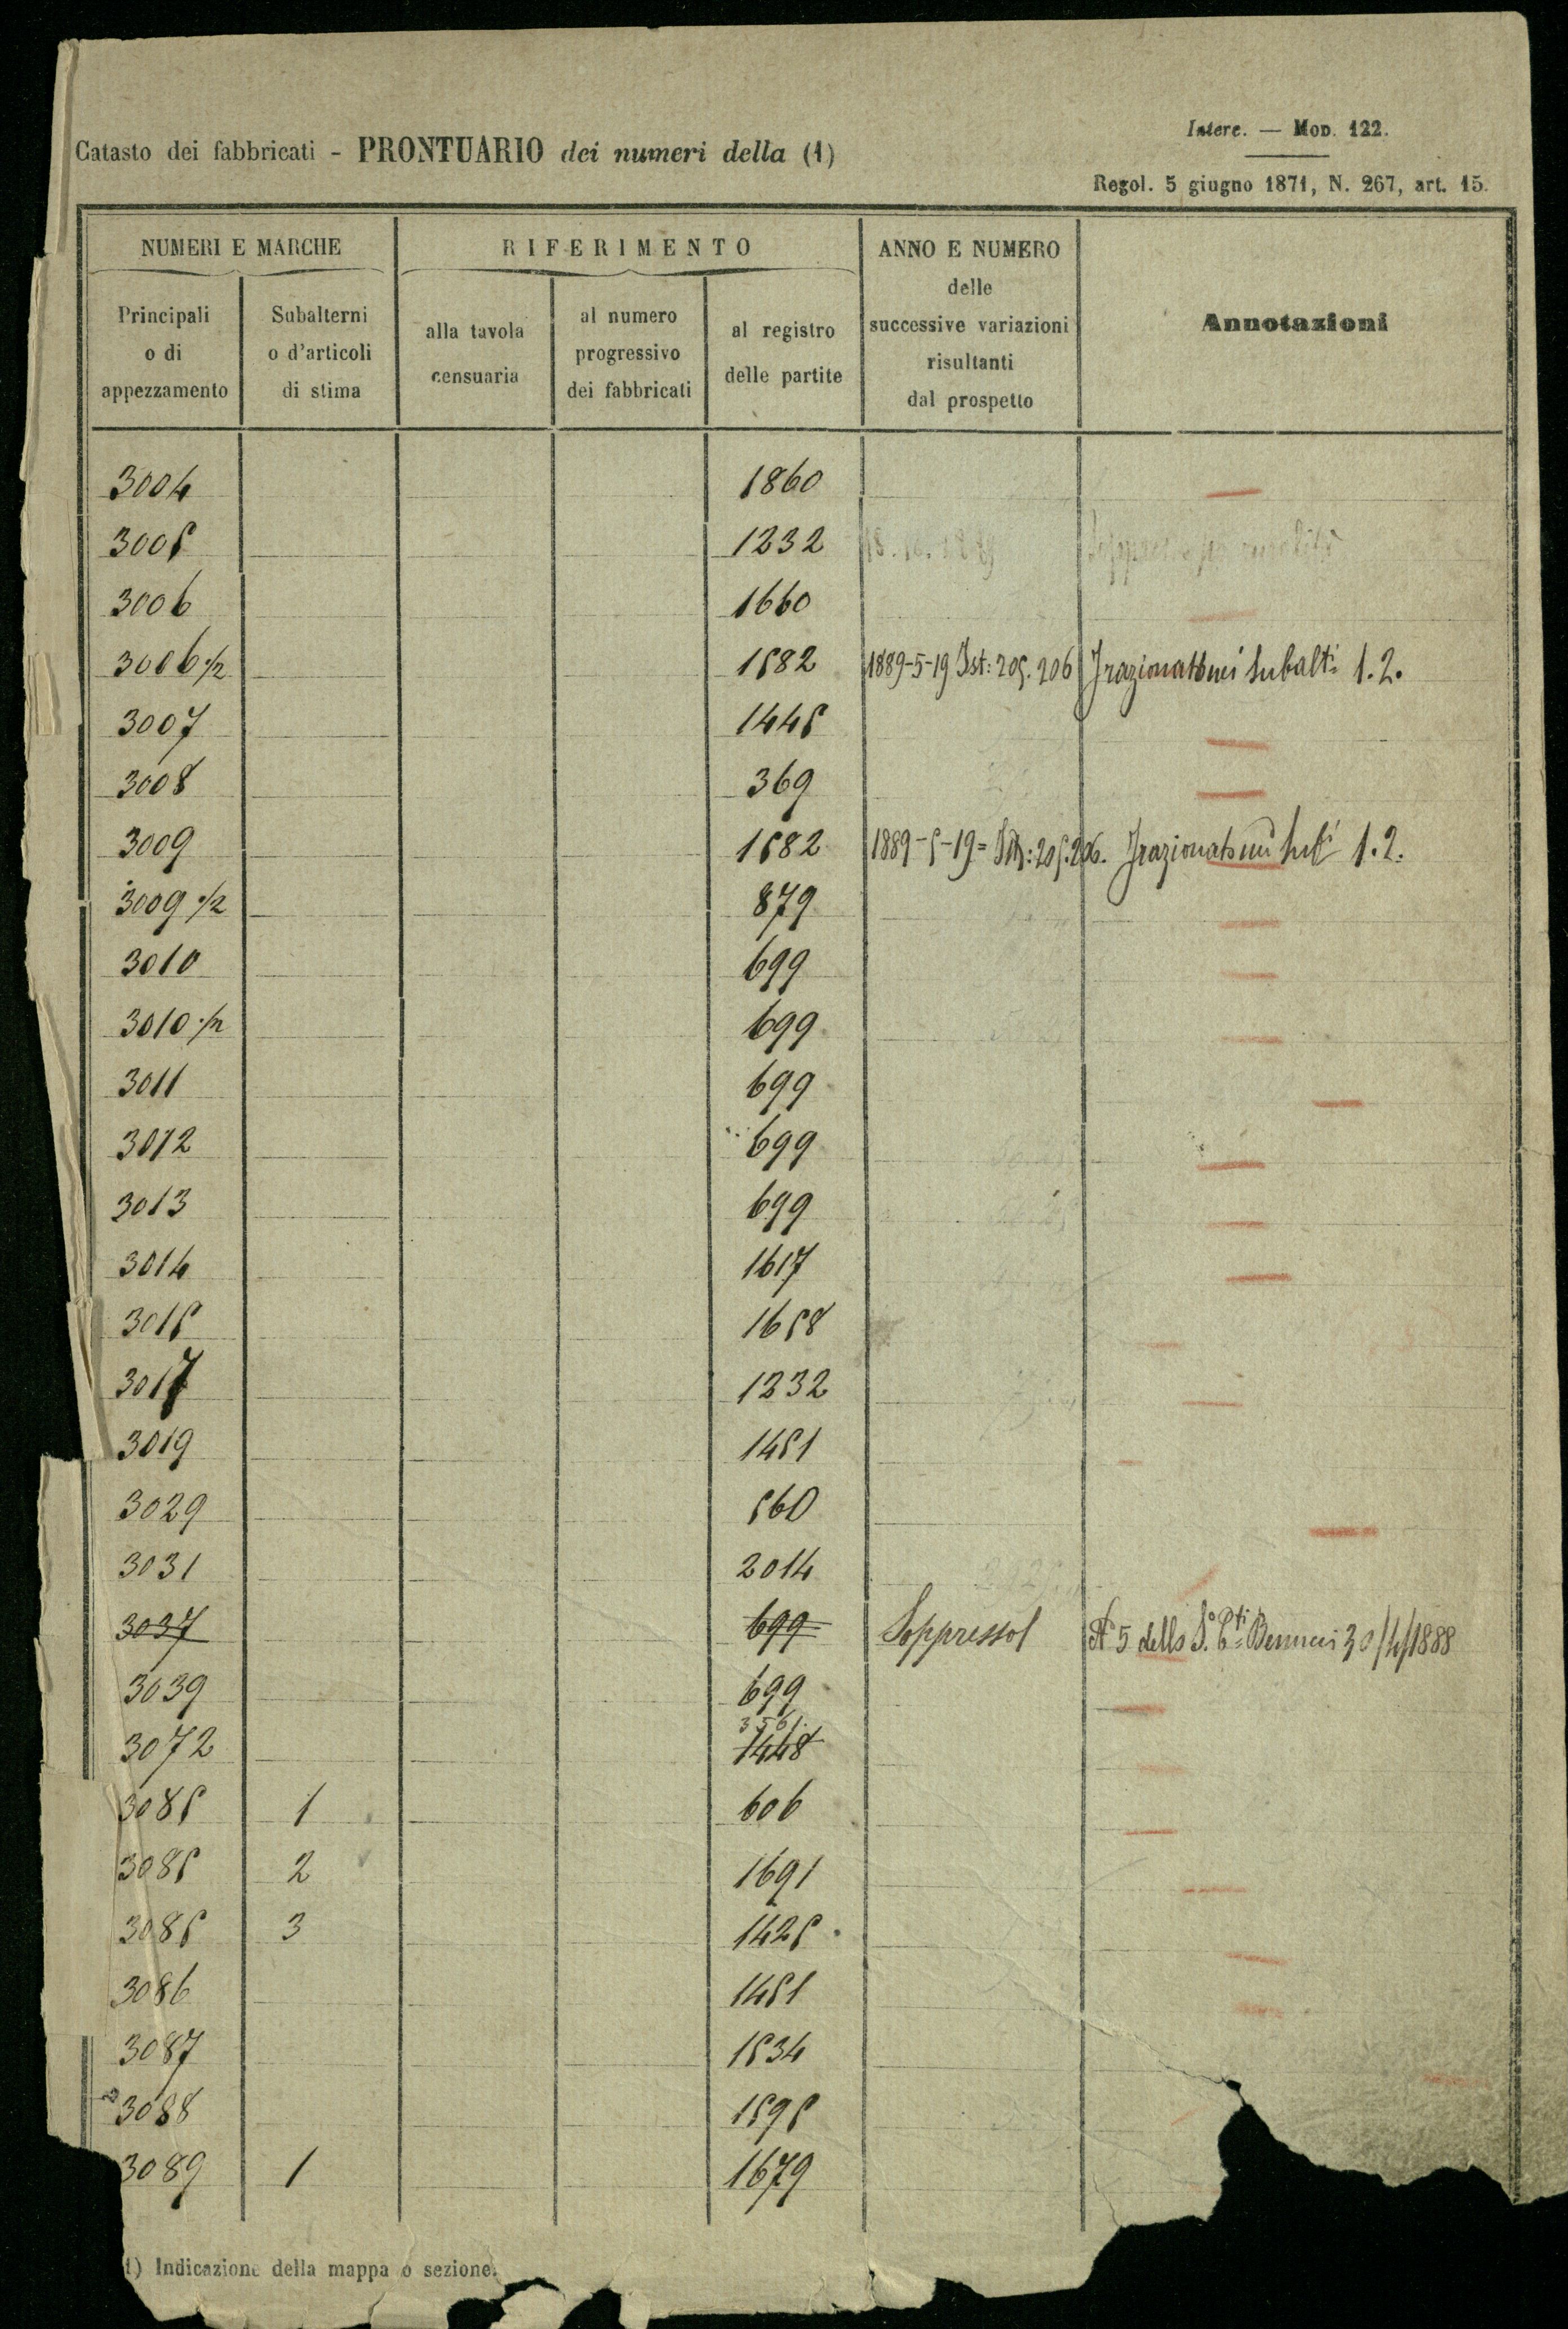 Intere. — Mod. 122.
Catasto dei fabbricati - PRONTUARIO dei numeri della (1)
Regol. 5 giugno 1871, N. 267, art. 15.
NUMERI E MARCHE RIFERIMENTO ANNO E NUMERO delle successive variazioni risultanti dal prospetto Annotazioni
Principali o di appezzamento Subalterni o d'articoli di stima alla tavola censuaria al numero progressivo dei fabbricati al registro delle partite
3004 1860
3005 1232
3006 1660
3006 ½ 1582 1889-5-19 Ist: 205. 206 subalti 1.2.
3007 1445
3008 369
3009 1582 1889-5-19= 205.206. 1.2.
3009 ½ 879
3010 699
3010 ½ 699
3011 699
3012 699
3013 699
3014 1617
3015 1658
3017 1232
3019 1451
3029 560
3031 2014
3037 699 Soppresso N 5 dello 30/4/1888
3039 699
3561
3072 1448
3085 1 606
3085 2 1691
3085 3 1425
3086 1451
3087 1534
3088 1595
3089 1 1679
1) Indicazione della mappa o sezione.